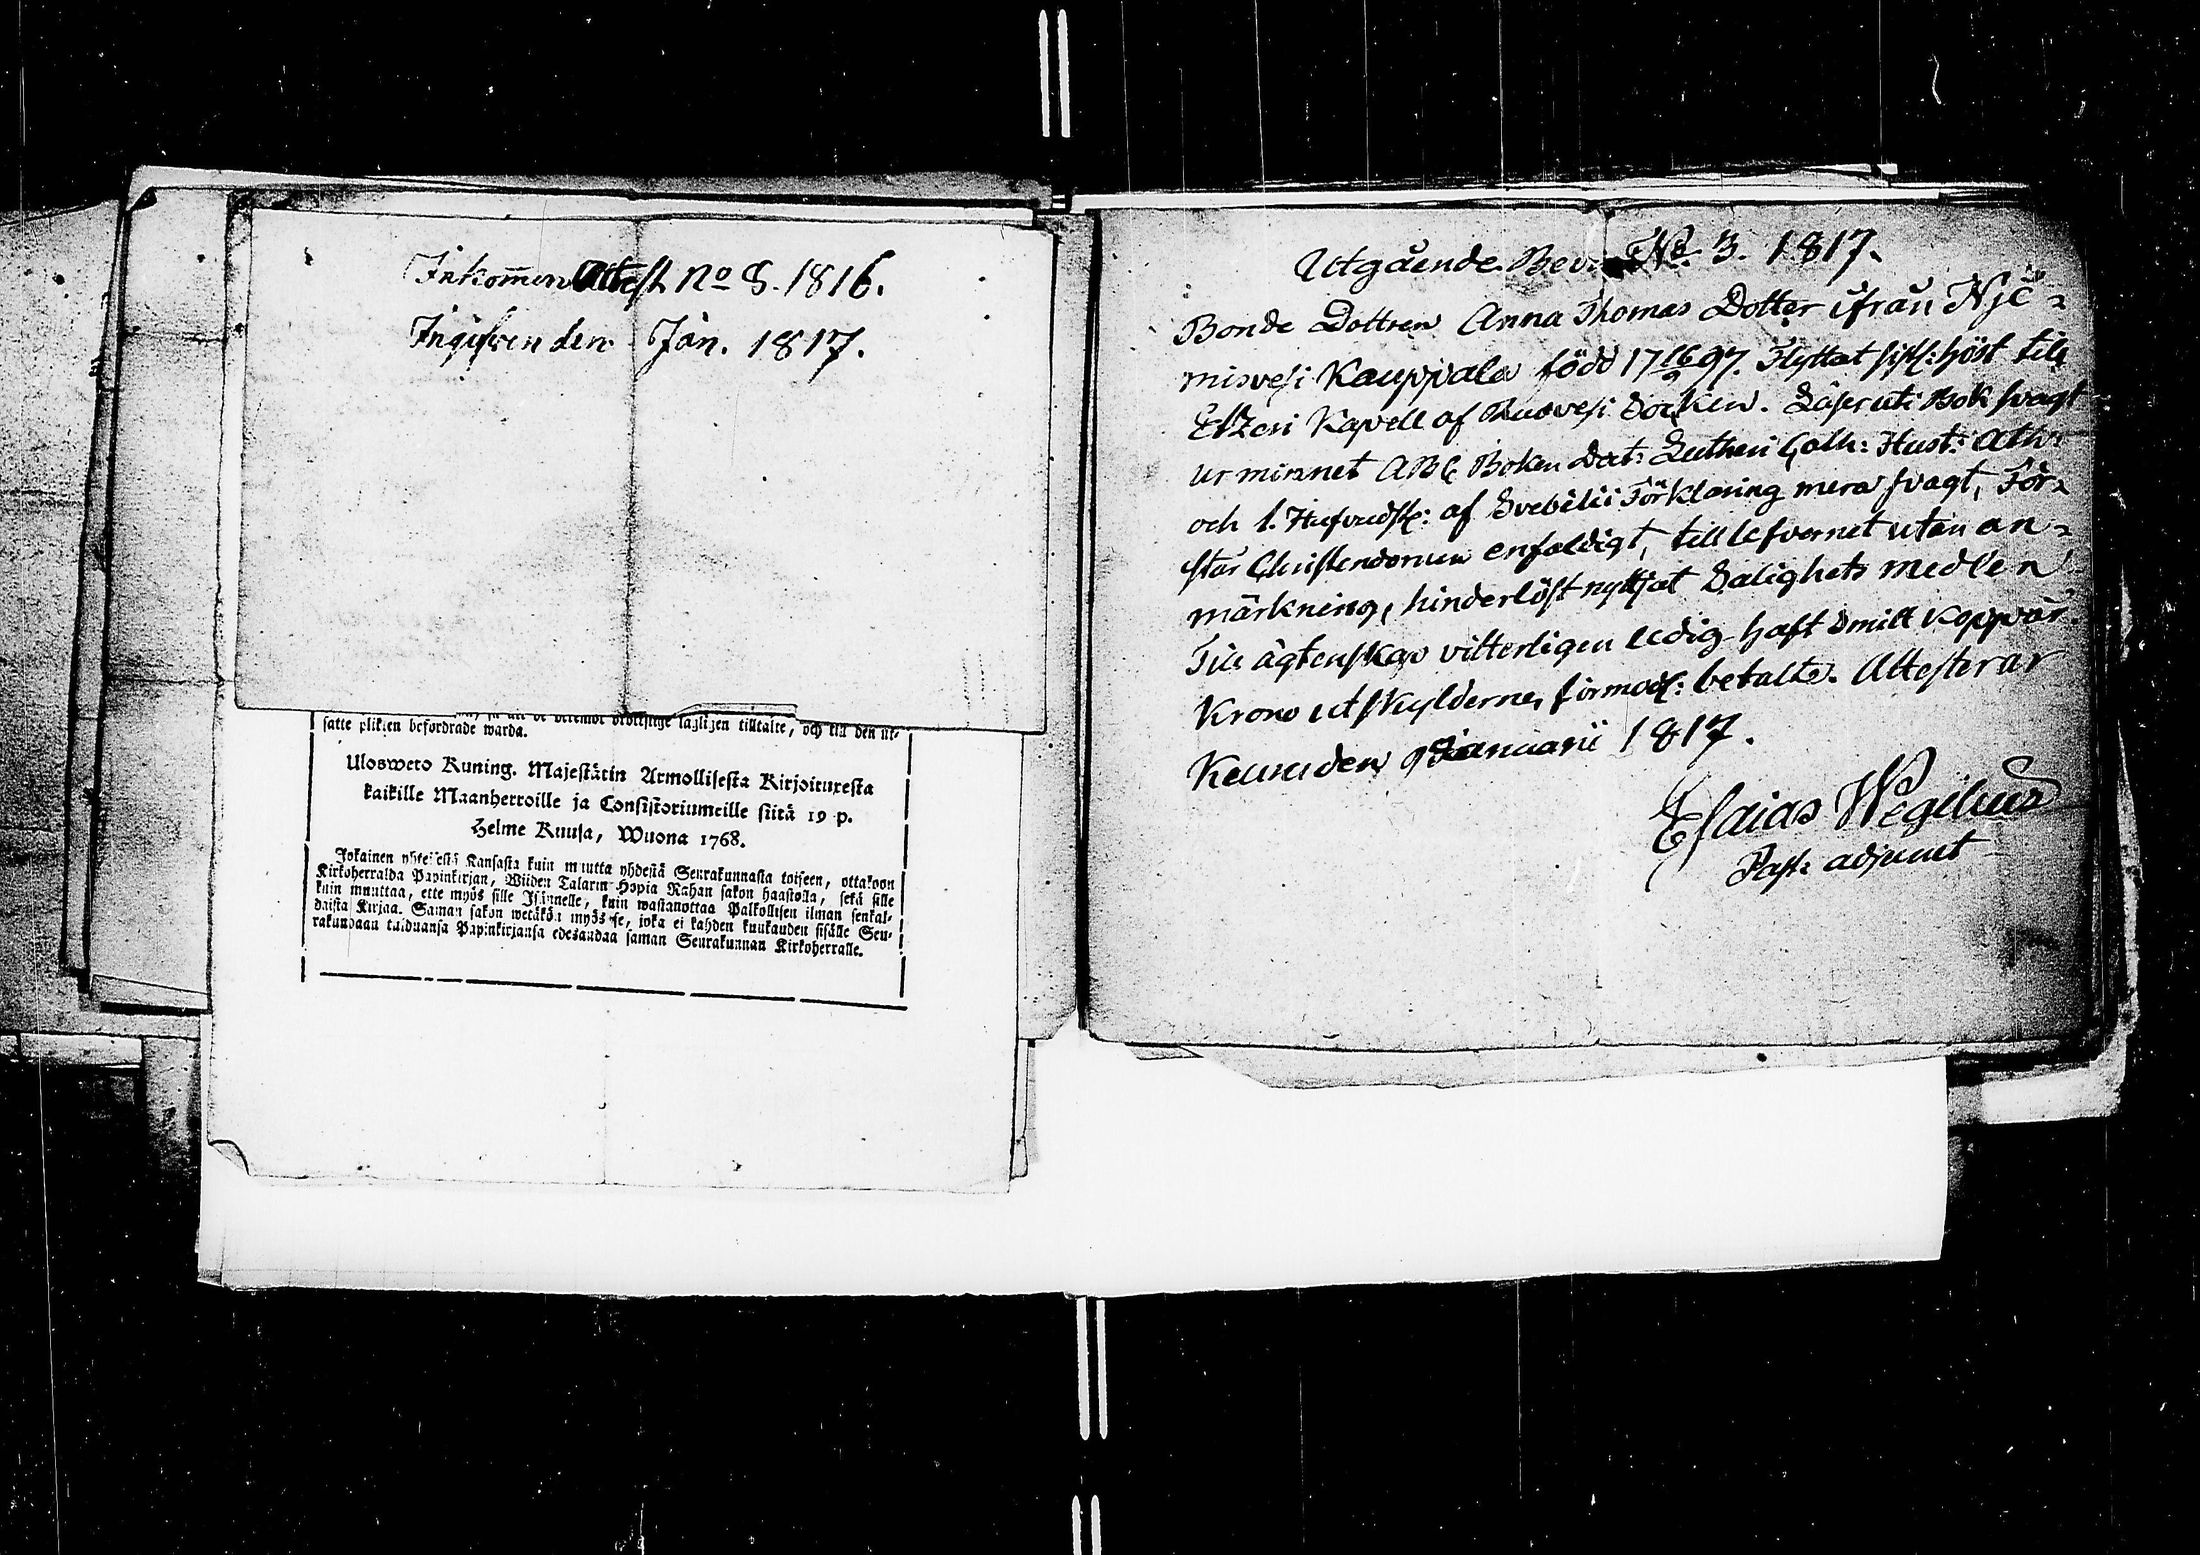 Inkommen Attest No 8. 1816.
Ingifven den Jan. 1817.
satte plikten befordrade warda.
Uloswcto Kuning. Majestätin Armollisesta Kirjoituxesta
kaikille Maanherroille ja Consistoriumeille siitä 19 p.
Helme Kuusa, Wuona 1768.
Jokainen yhteisestä Kansasta kuin muutta yhdestä Seurakunnasta toiseen, ottakoon
Kirkoherralda Papinkirjan, Wiiden Talarin Hopia Rahan sakon haastolla, sekä sille
kuin muuttaa, ette myös sille Isännelle, kuin wastanottaa Palkollisen ilman senkal-
daista Kirjaa. Saman sakon wetäkön myös se, joka ei kahden kuukauden sisälle Seu-
rakundaan tulduansa Papinkirjansa edesandaa saman Seurakunnan Kirkoherralle.
Utgående Bevis No 3. 1817.
Bonde Dottren Anna Thomas Dotter ifrån Nje-
misvesi Kauppala född 17 16/9 97. Flyttat sistl: höst till
Etzeri Kapell af Ruovesi Socken. Läser uti Bok svagt
ur minnet ABC Boken Dat: Lutheri Cath: Hust: Ath:
och 1. Hufvudst: af Svebilii Förklaring mera svagt, För-
står Christendomen enfaldigt, till lefvernet utan an-
märkning, hinderlöst nyttjat Salighets medlen
Till ägtenskap vitterligen ledig haft Smitt Koppor
Krono utskylderne förmod: betalte. Attesterar
Keuru den 9 Januarii 1817.
Esaias Wegelius
Past: adjunct